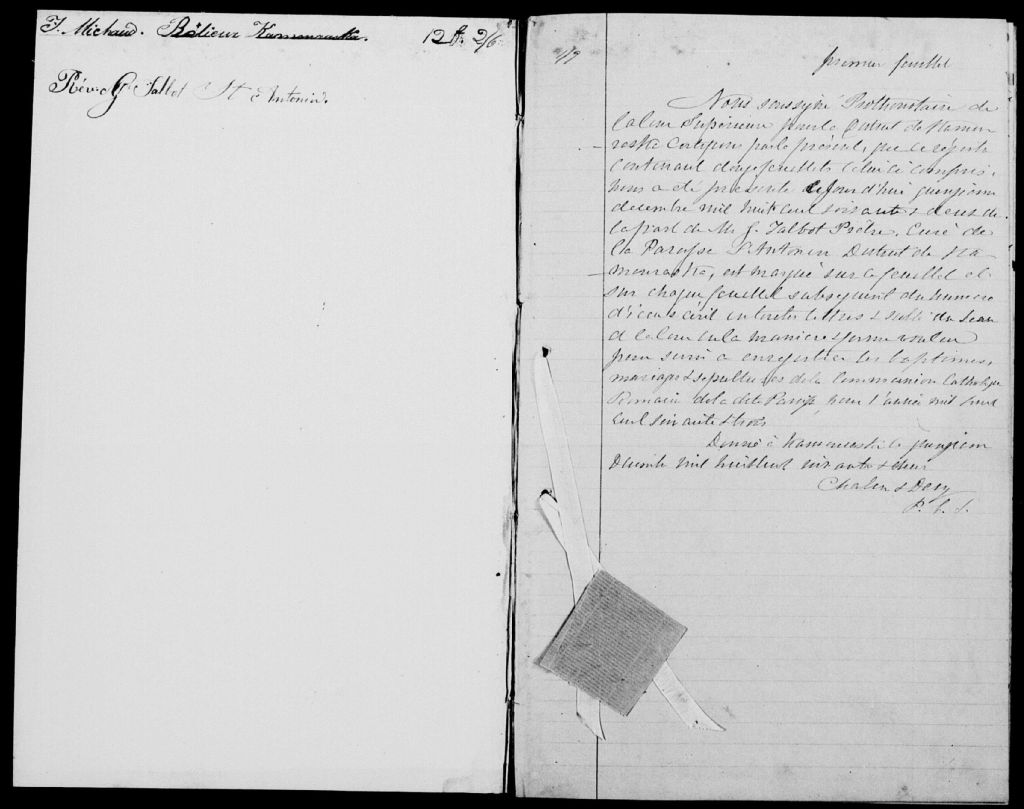 J. Michaud. Rélieur Kamouraska. 12 f. 2/6
Rév. G Talbot St Antonin.
premier feuillet
Nous soussigné Prothonotaire de
la Cour Supérieure pour le District de Kamou
raska Certifions par le présent, que ce régistre
contenant douze feuillets celui ci compris,
nous a été présenté ce jour d'hui quinzième
decembre mil huit cent soixante & deux de
la part de Mr G. Talbot Prêtre, Curé de
la Paroisse St Antonin District de Ka-
mouraska, est marqué sur ce feuillet et
sur chaque feuillet subsequent du numero
d'iceux écrit en toutes lettres & scellé du sceau
de la Cour en la maniere & forme voulue
pour servir a enregistrer les baptêmes,
mariages & sepultures de la Communion Catholique
Romaine de la dite Paroisse, pour l'année mil huit
cent soixante & trois
Donné à Kamouraska le quinzieme
Decembre mil huit cent soixante & deux
& Desy
P. C. S.